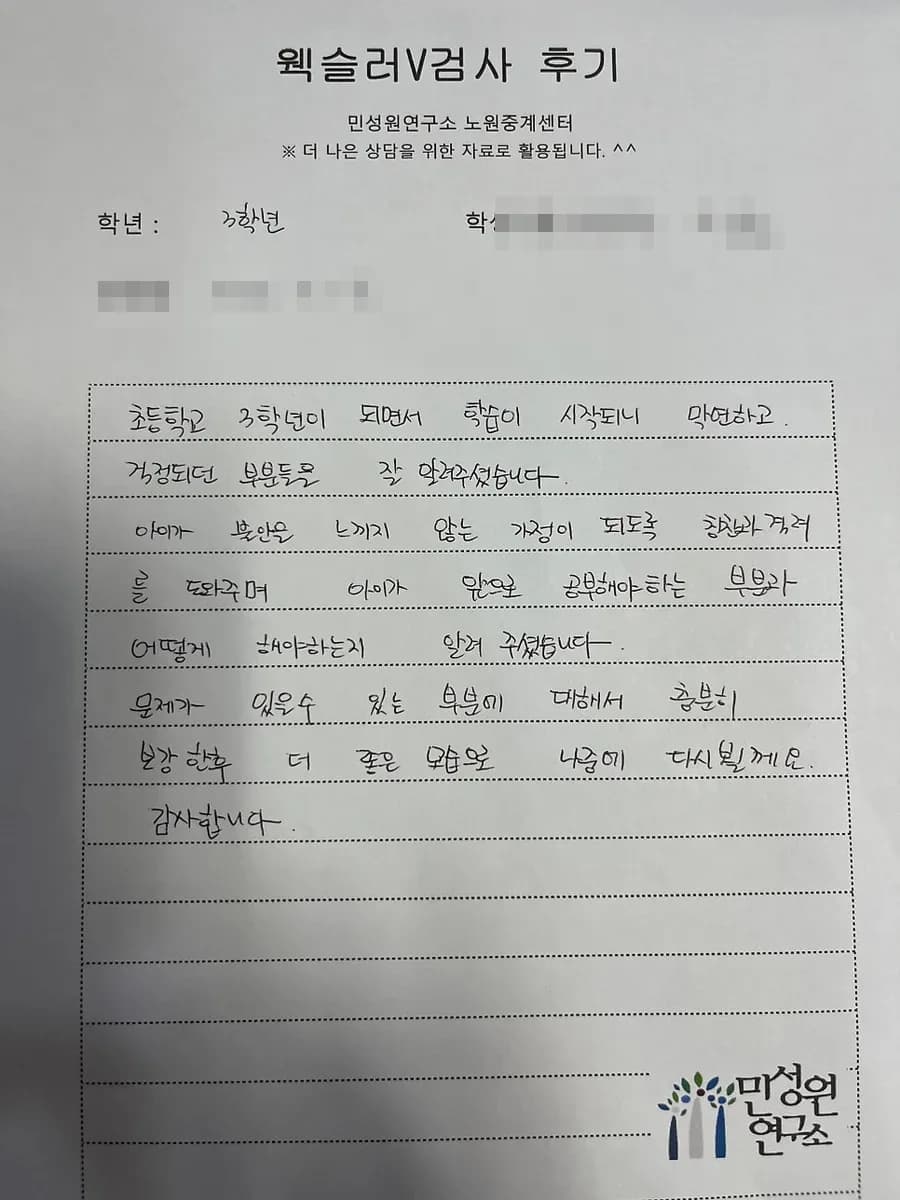 웩슬러V검사 후기
민성원연구소 노원중계센터
※ 더 나은 상담을 위한 자료로 활용됩니다. ^^
학년 : 3학년 학
초등학교 3학년이 되면서 학습이 시작되니 막연하고.
걱정되던 부분들을 잘 알려주셨습니다.
아이가 불안을 느끼지 않는 가정이 되도록 칭찬과 격려
를 도와주며 아이가 앞으로 공부해야하는 부분과
어떻게 해야하는지 알려 주셨습니다.
문제가 있을수 있는 부분에 대해서 충분히
보강 한후 더 좋은 모습으로 나중에 다시뵐께요.
감사합니다.
민성원
연구소